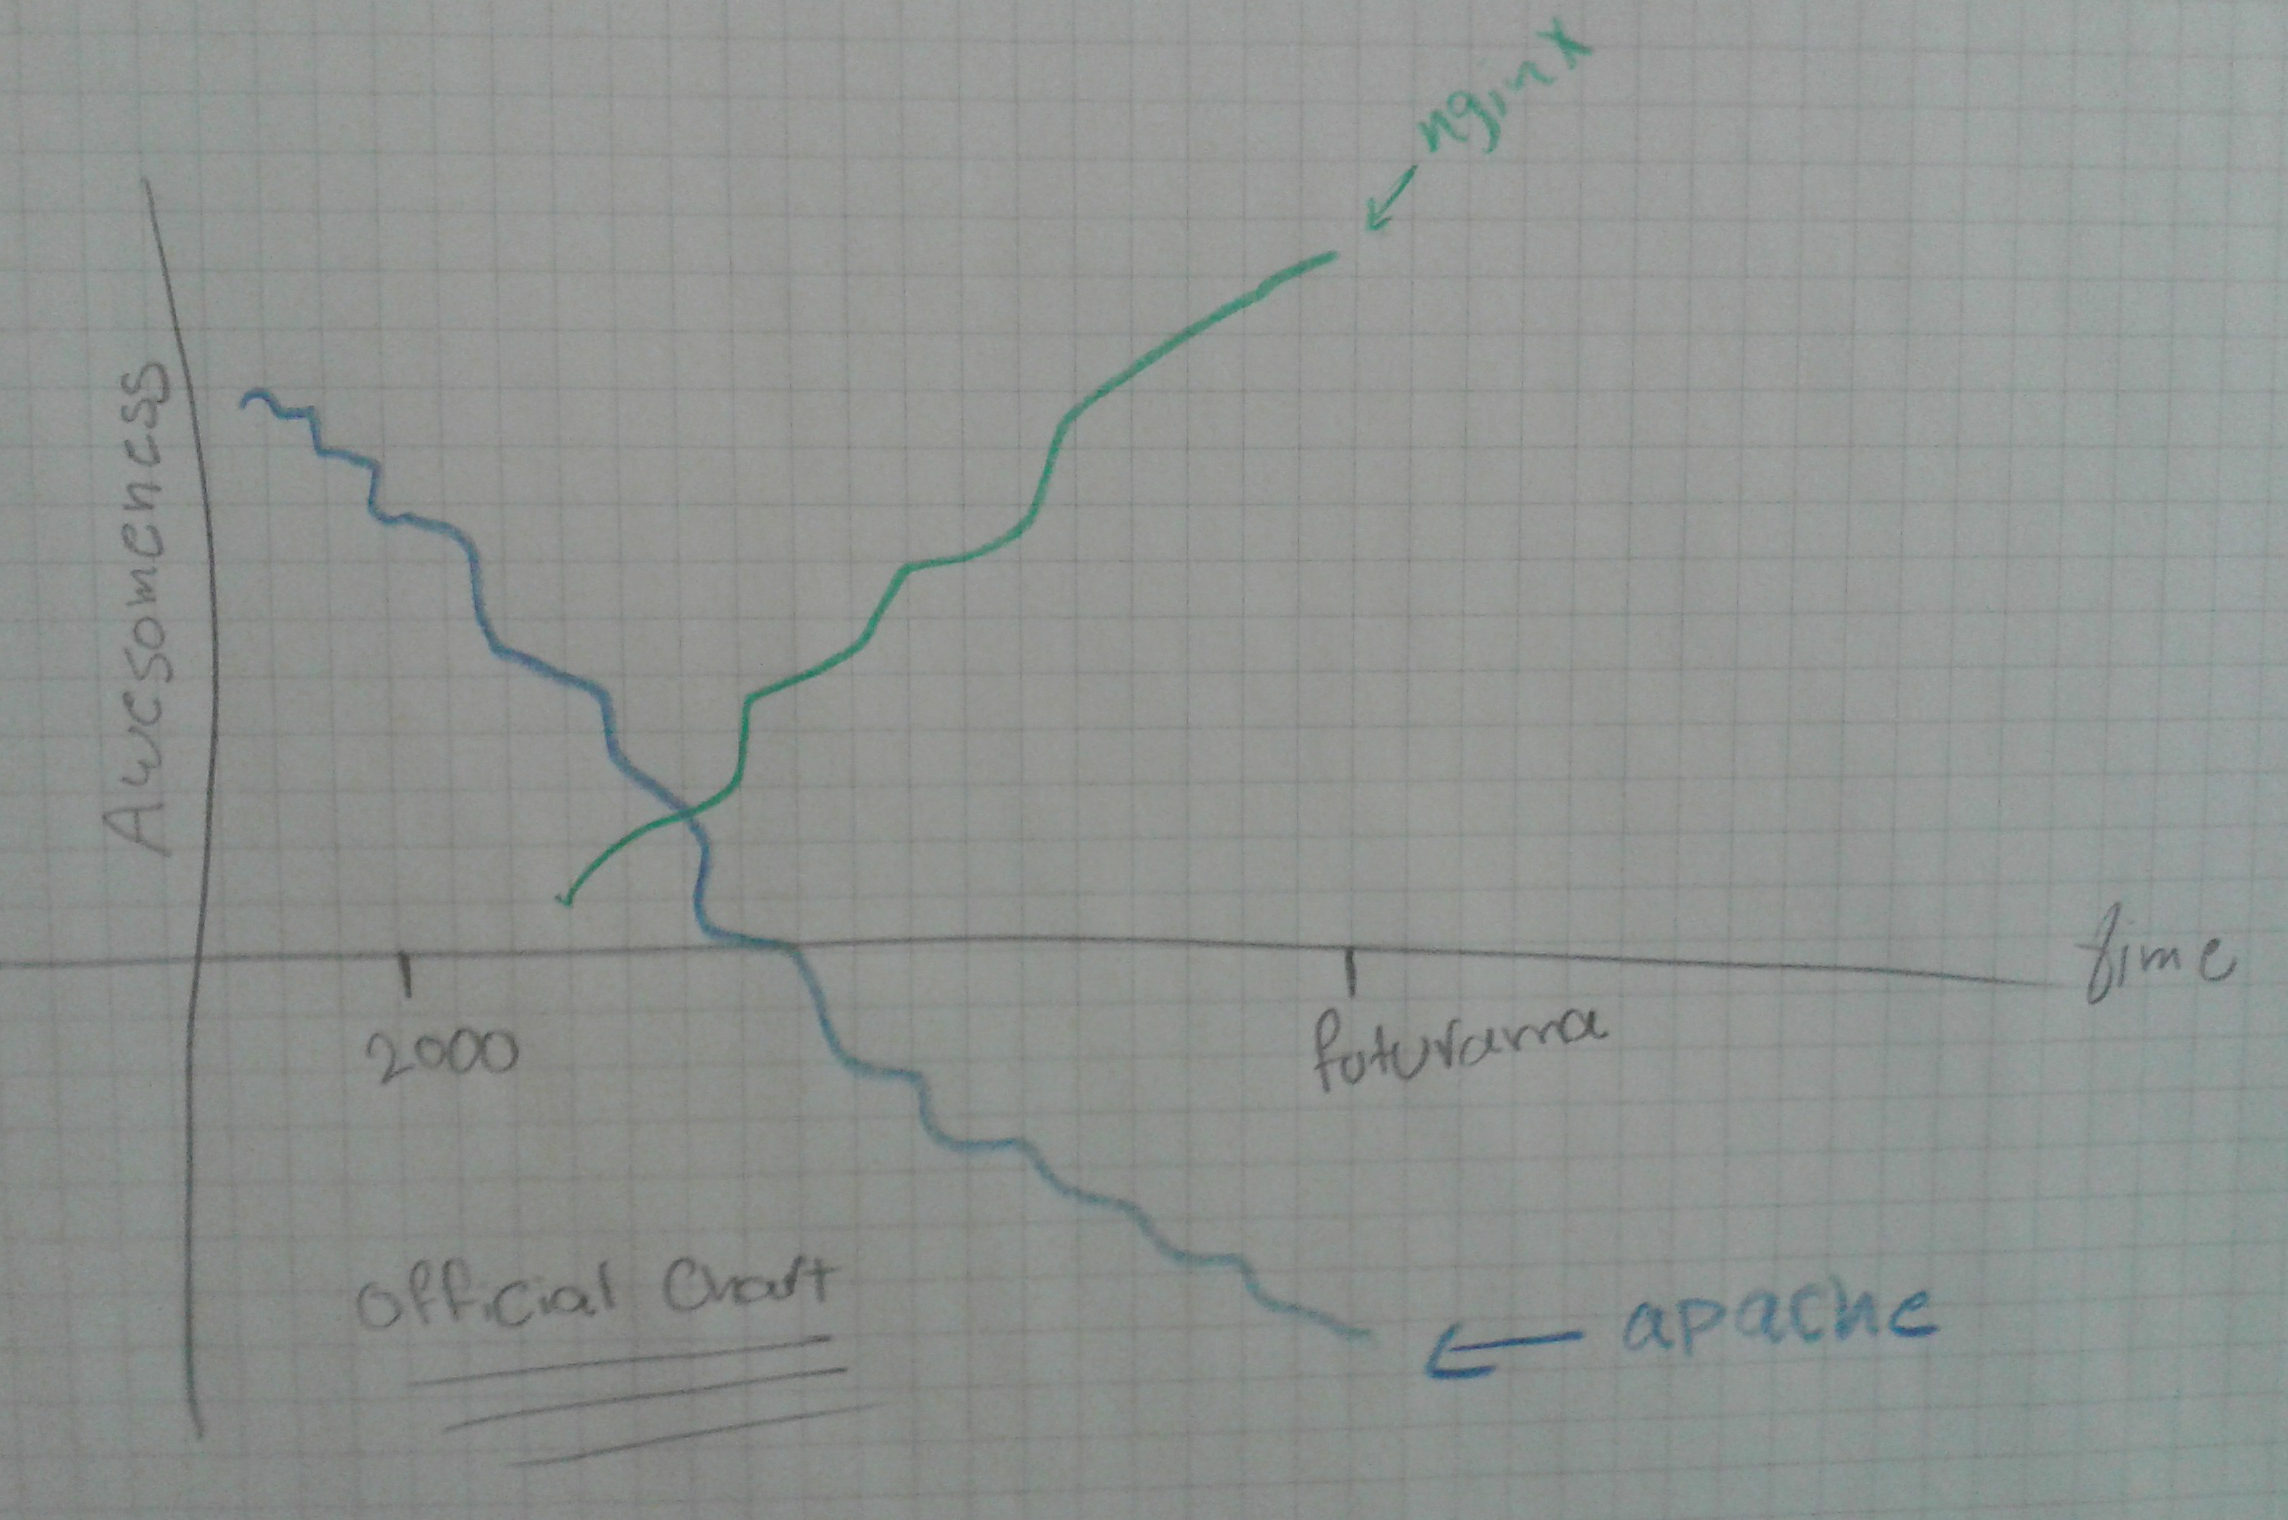 nginx
Awesomeness
time
2000
futurama
Official Chart
apache